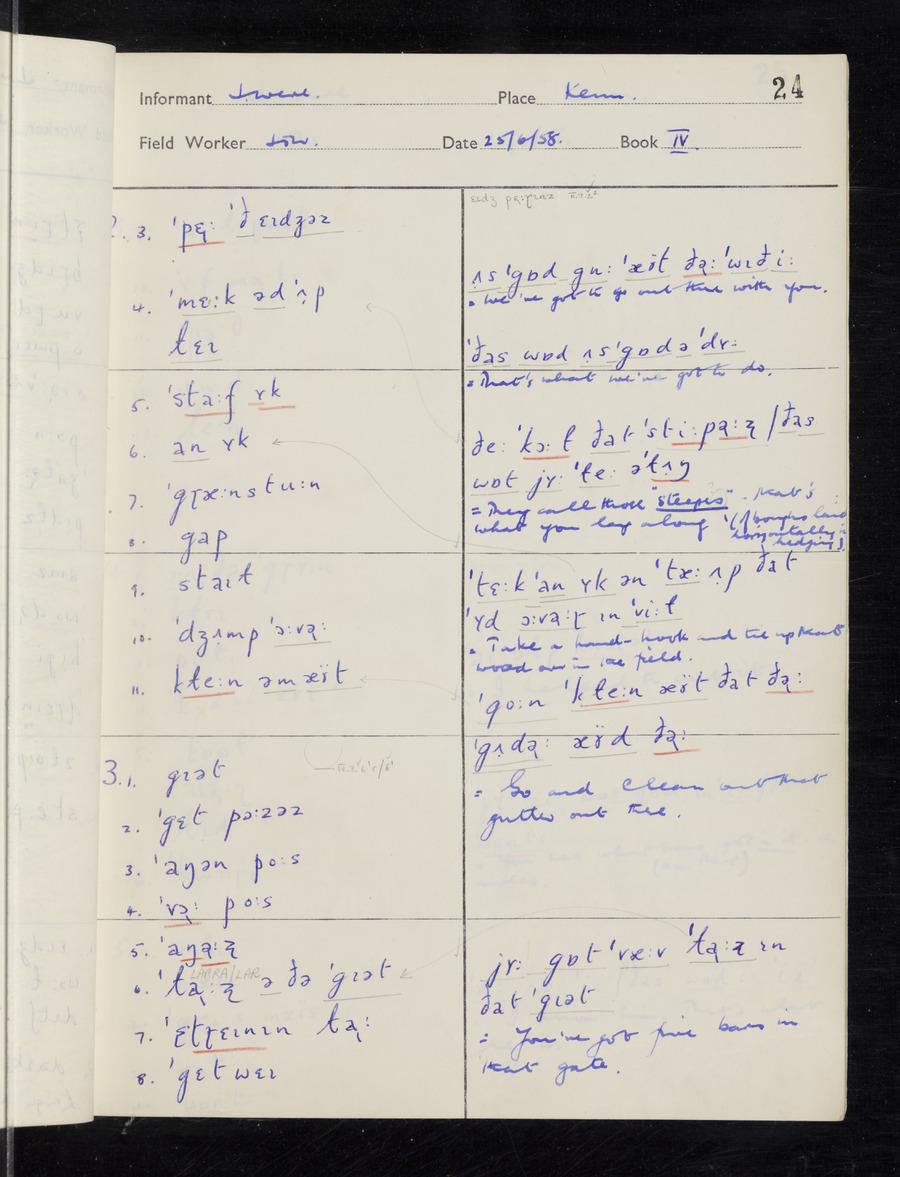 24
Informant Place Kenn.
Field Worker Date 25/6/58. Book IV.
2. 3. 'pɛɻ: 'ðɛɪdʒəz
4. 'mɛ:k əd 'ʌp
tɛɪ
5. 'sta:f ʏk
6. an ʏk
7. 'gɽæ:nstu:n
8. gap
9. staɪt
10. 'dʒʌmp 'ɔ:və:
11. kɫe:n əm æÿt
3. 1. gɪət
2. 'gɛt pɔ:zəz
3. 'aŋən po:s
4. 'və: po:s
5. 'aŋə:ʐ
6. 'ta:ʐ ə ðə 'gɪət
LARRA/LAR
7. 'ɛtɽɛɪnɪn ta:
8. 'gɛtwɛɪ
ʌs 'gɒd gu: 'æÿt ðə: 'wɪði:
= We've got to go out there with you.
'ðas wɒd ʌs 'gɒdə 'dʏ:
= That's what we've got to do.
ðe: 'kɔ:ɫ ðat 'sti:pə:ʐ / ðas
wɒt jʏ: 'ɫe: ə'ɫʌŋ
= They call those "steepers". That's
what you lay along (of boughs laid
horizontally in
hedging).
'tɛ:k 'an ʏk ən 'tæ: ʌp ðat
'ʏd ɔ:və:ɽ ɪn 'vi:ɫ
= Take a hand-hook and tie up that
wood over in the field.
'go:n 'kɫe:n æÿt ðat ðə:
'gʌdə: æÿd ðə:
= Go and clean out that
gutter out there.
jʏ: gɒt 'væ:v 'ta:ʐ ɪn
ðat 'gɪət
= You've got five bars in
that gate.